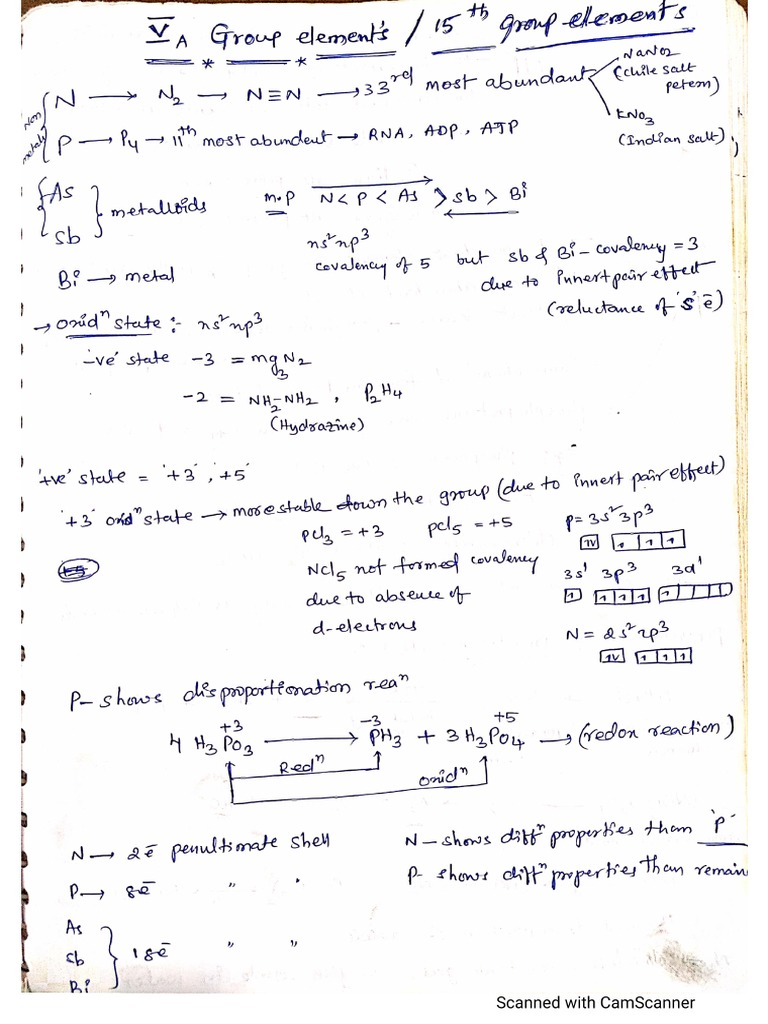 V A Group element's / 15th group elements
Non metals { N → N2 → N≡N → 33rd most abundant NaNO2 (chile salt petern)
KNO3 (Indian salt)
P → P4 → 11th most abundent → RNA, ADP, ATP
{As Sb} metalloids m.p N < P < As > Sb > Bi
ns2np3
Bi → metal covalency of 5 but Sb & Bi - covalency = 3
due to innert pair effect
(reluctance of 's' ē)
→ Oxidn state :- ns2np3
-ve' state -3 = mg3N2
-2 = NH2-NH2 , P2H4
(Hydrazine)
'+ve' state = '+3', '+5'
'+3' oxidn state → more stable down the group (due to innert pair effect)
pcl3 = +3 pcl5 = +5 p = 3s2 3p3
1v 1 1 1
Ncl5 not formed covalency 3s1 3p3 3d1
due to absence of 1 1 1 1 1
d-electrons
N = 2s2 2p3
1v 1 1 1
P- shows disproportionation rean
+3 -3 +5
4 H3PO3 → PH3 + 3H3PO4 → (redox reaction)
Redn
Oxidn
N → 2ē penultimate shell N - shows diffn properties than 'p'
P → 8ē " " P- shows diffn properties than remain
As
Sb } 18ē " "
Bi
Scanned with CamScanner